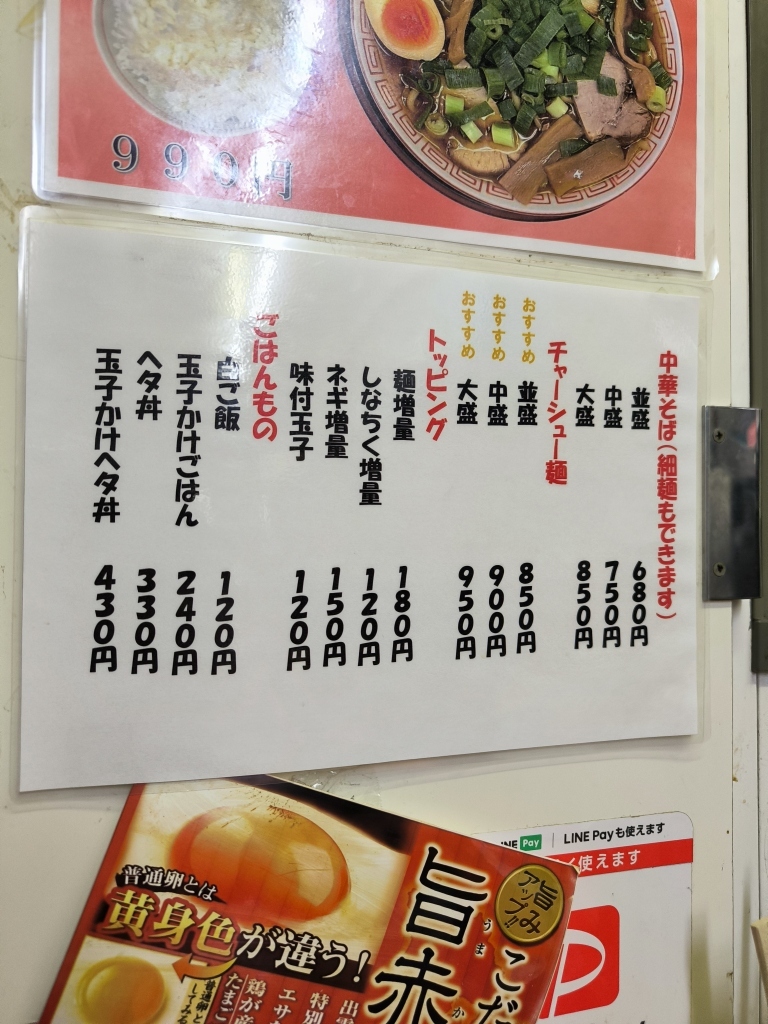 999円
中華そば(細麺もできます)
並盛 680円
中盛 750円
大盛 850円
チャーシュー麺
おすすめ 並盛 850円
おすすめ 中盛 900円
おすすめ 大盛 950円
トッピング
麺増量 180円
しなちく増量 120円
ネギ増量 150円
味付玉子 120円
ごはんもの
白ご飯 120円
玉子かけごはん 240円
ヘタ丼 330円
玉子かけヘタ丼 430円
LINE Pay
LINE Payも使えます
使えます
旨み
アップ!!
こだ
旨赤
うま
か
普通卵とは
黄身色が違う!
特別
エサ
鶏が産
たまご
普通卵と
してみる